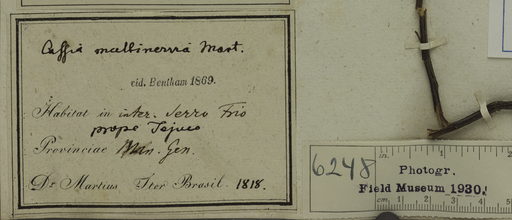 Cassia multinervia Mart.
vid. Bentham 1869.
Habitat in inter. Serro Frio
prope Tejuco
Provinciae Min. Gen.
Dr Martius Iter Brasil. 1818.
6248
in. 1 2
Photogr.
Field Museum 1930.
cm. 1 2 3 4 5